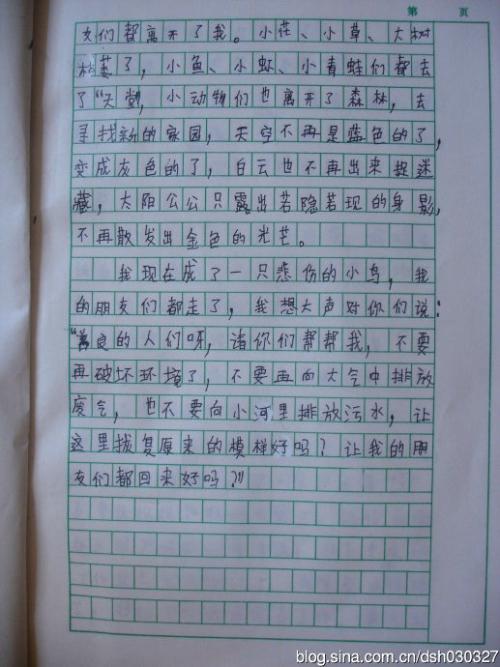 第 页
友们都离开了我。小花、小草、大树
枯萎了，小鱼、小虾、小青蛙们都去
了“天堂，小动物们也离开了森林，去
寻找新的家园，天空不再是蓝色的了，
变成灰色的了，白云也不再出来捉迷
藏，太阳公公只露出若隐若现的身影，
不再散发出金色的光芒。
我现在成了一只悲伤的小鸟，我
的朋友们都走了，我想大声对你们说：
“善良的人们呀，请你们帮帮我，不要
再破坏环境了，不要再向大气中排放
废气，也不要向小河里排放污水，让
这里恢复原来的模样好吗？让我的朋
友们都回来好吗？”
blog.sina.com.cn/dsh030327